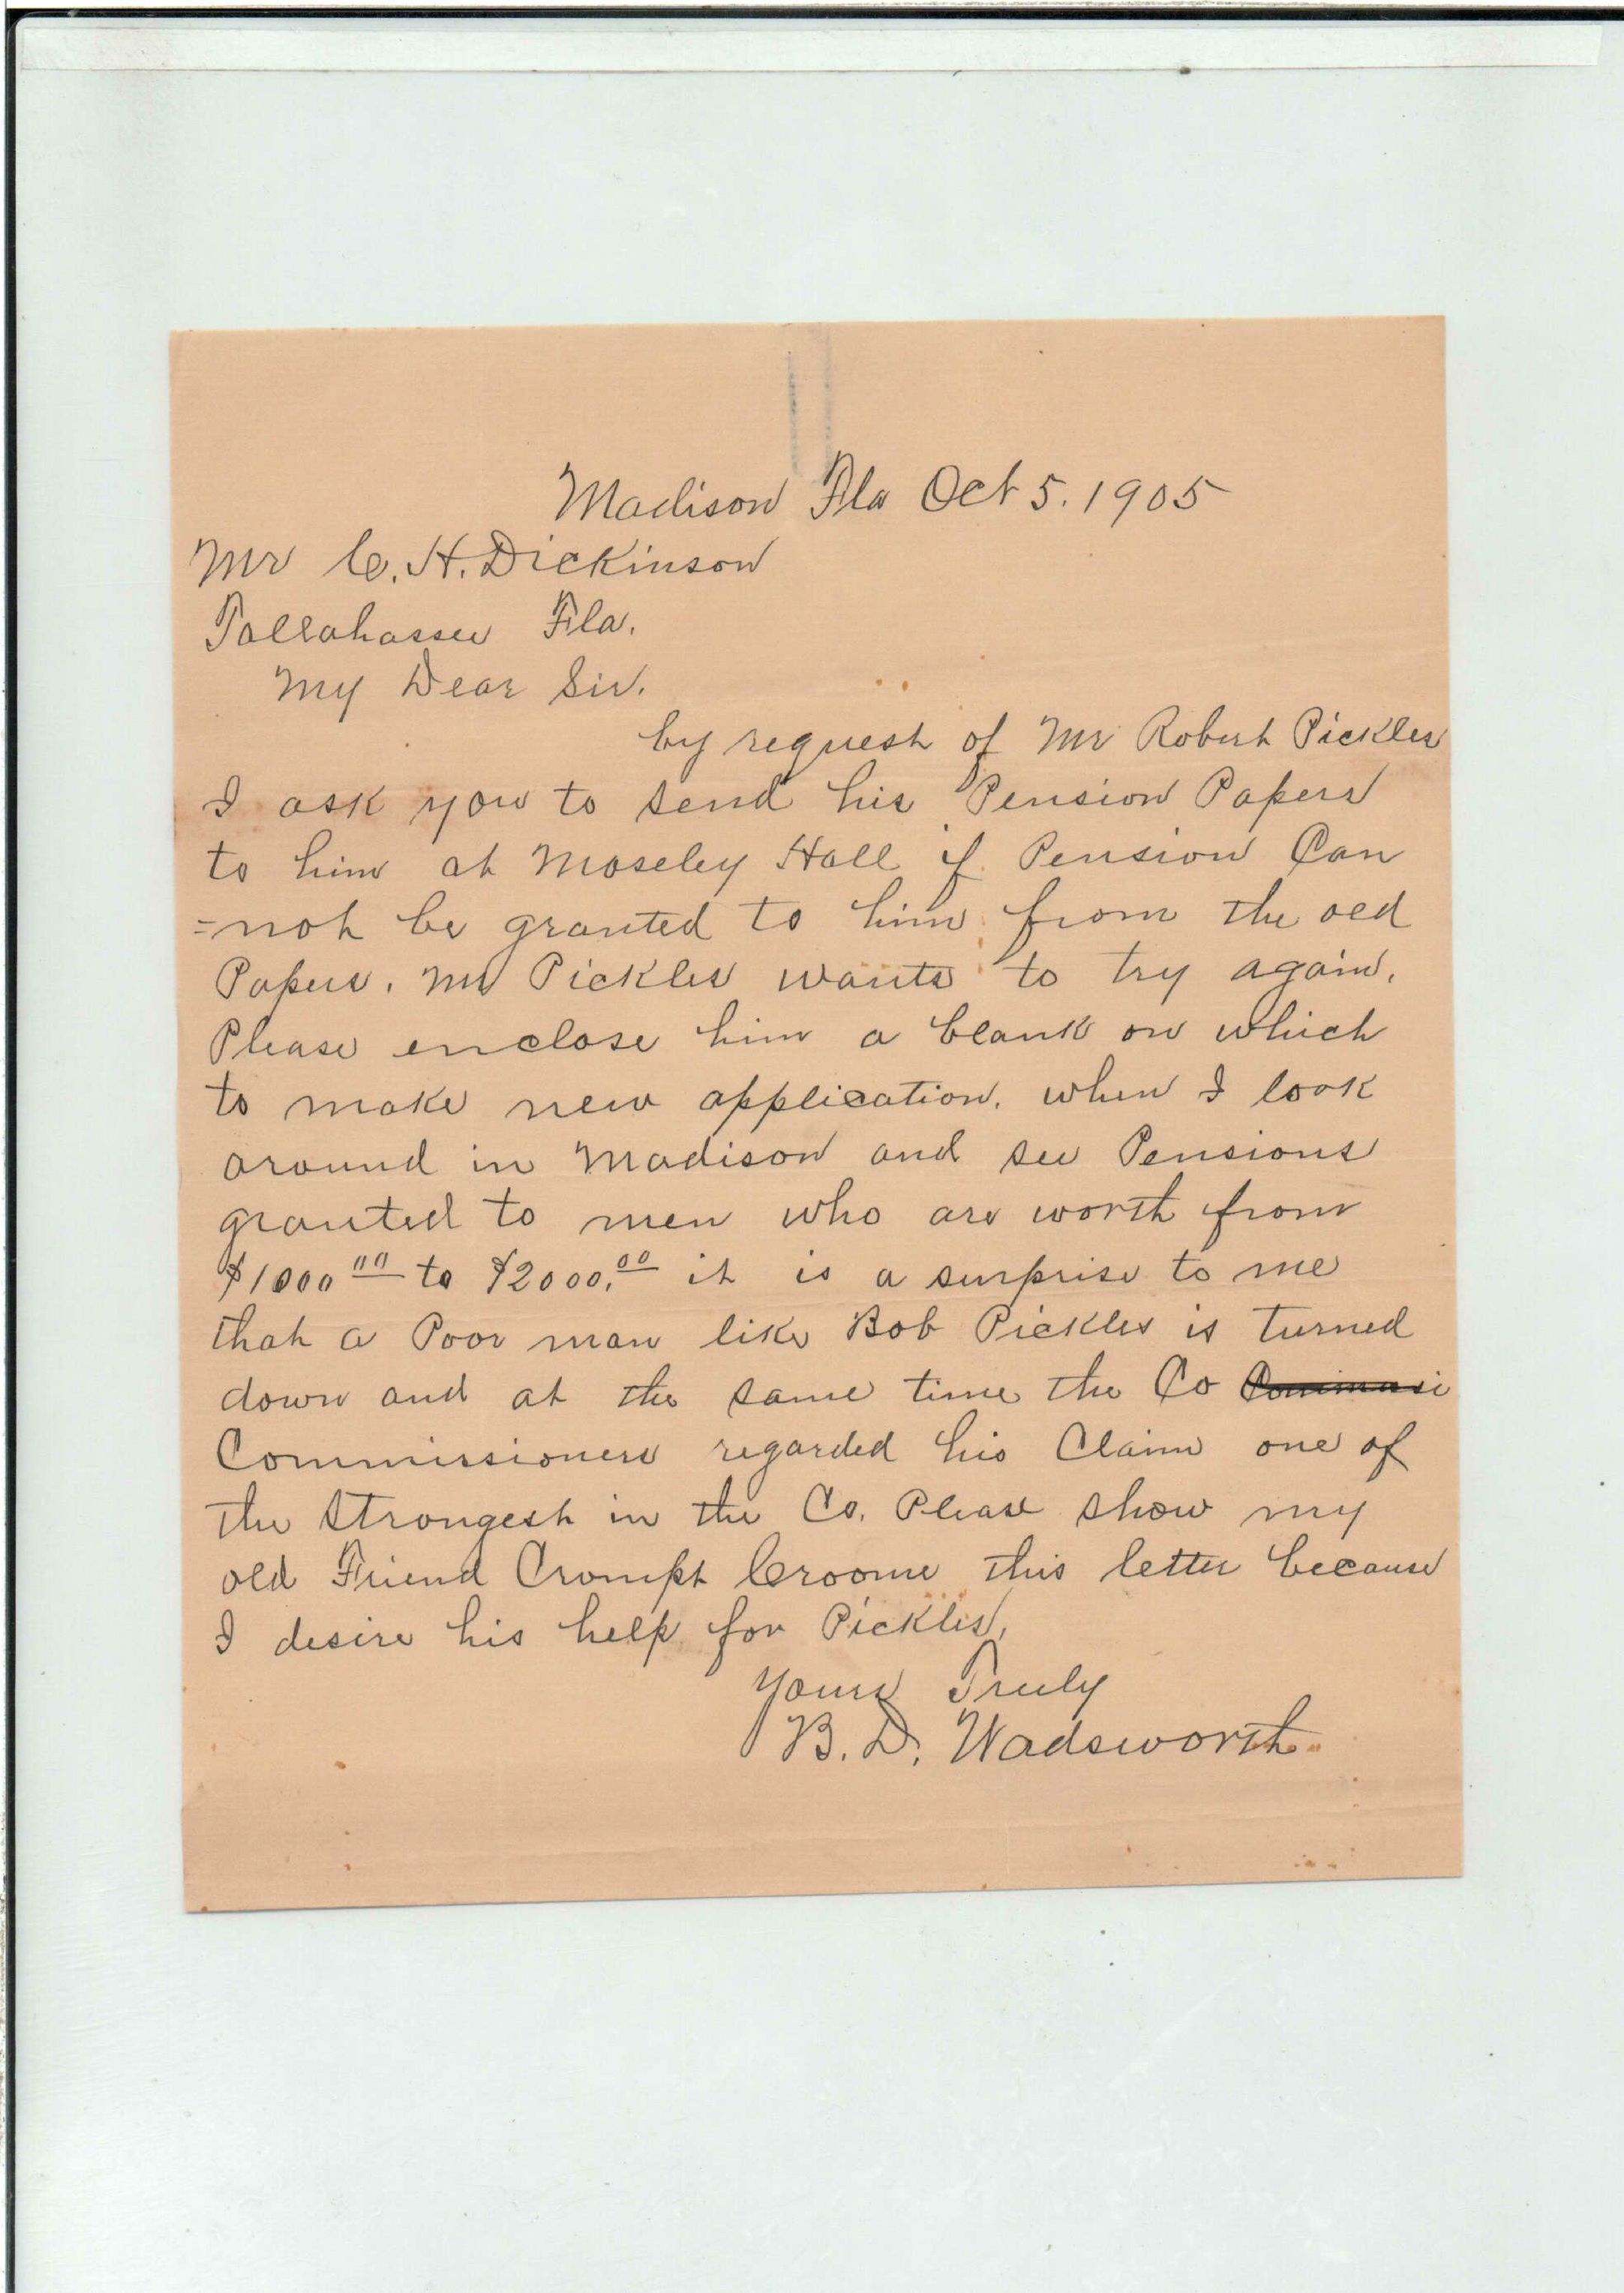 Madison Fla Oct 5. 1905
Mr C. H. Dickinson
Tallahassee Fla.
My Dear Sir.
by request of Mr Robert Pickles
I ask you to send his Pension Papers
to him at Moseley Hall if Pension Can
=not be granted to him from the old
Papers. Mr Pickles wants to try again.
Please enclose him a blank on which
to make new application. when I look
around in Madison and see Pensions
granted to men who are worth from
$1000 00 to $2000. 00 it is a surprise to me
that a Poor man like Bob Pickles is turned
down and at the same time the Co Commissi
Commissioners regarded his Claim one of
the strongest in the Co. Please show my
old Friend Crompt Croome this letter because
I desire his help for Pickles.
Yours Truly
B. D. Wadsworth